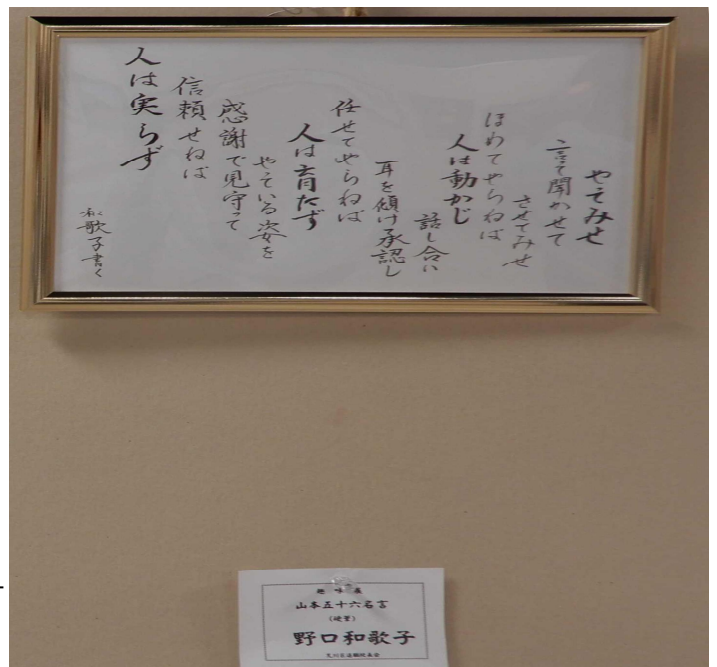 やってみせ
言って聞かせて
させてみせ
ほめてやらねば
人は動かじ
話し合い
耳を傾け承認し
任せてやらねば
人は育たず
やっている姿を
感謝で見守って
信頼せねば
人は実らず
和歌子書く
趣味展
山本五十六名言
(硬筆)
野口和歌子